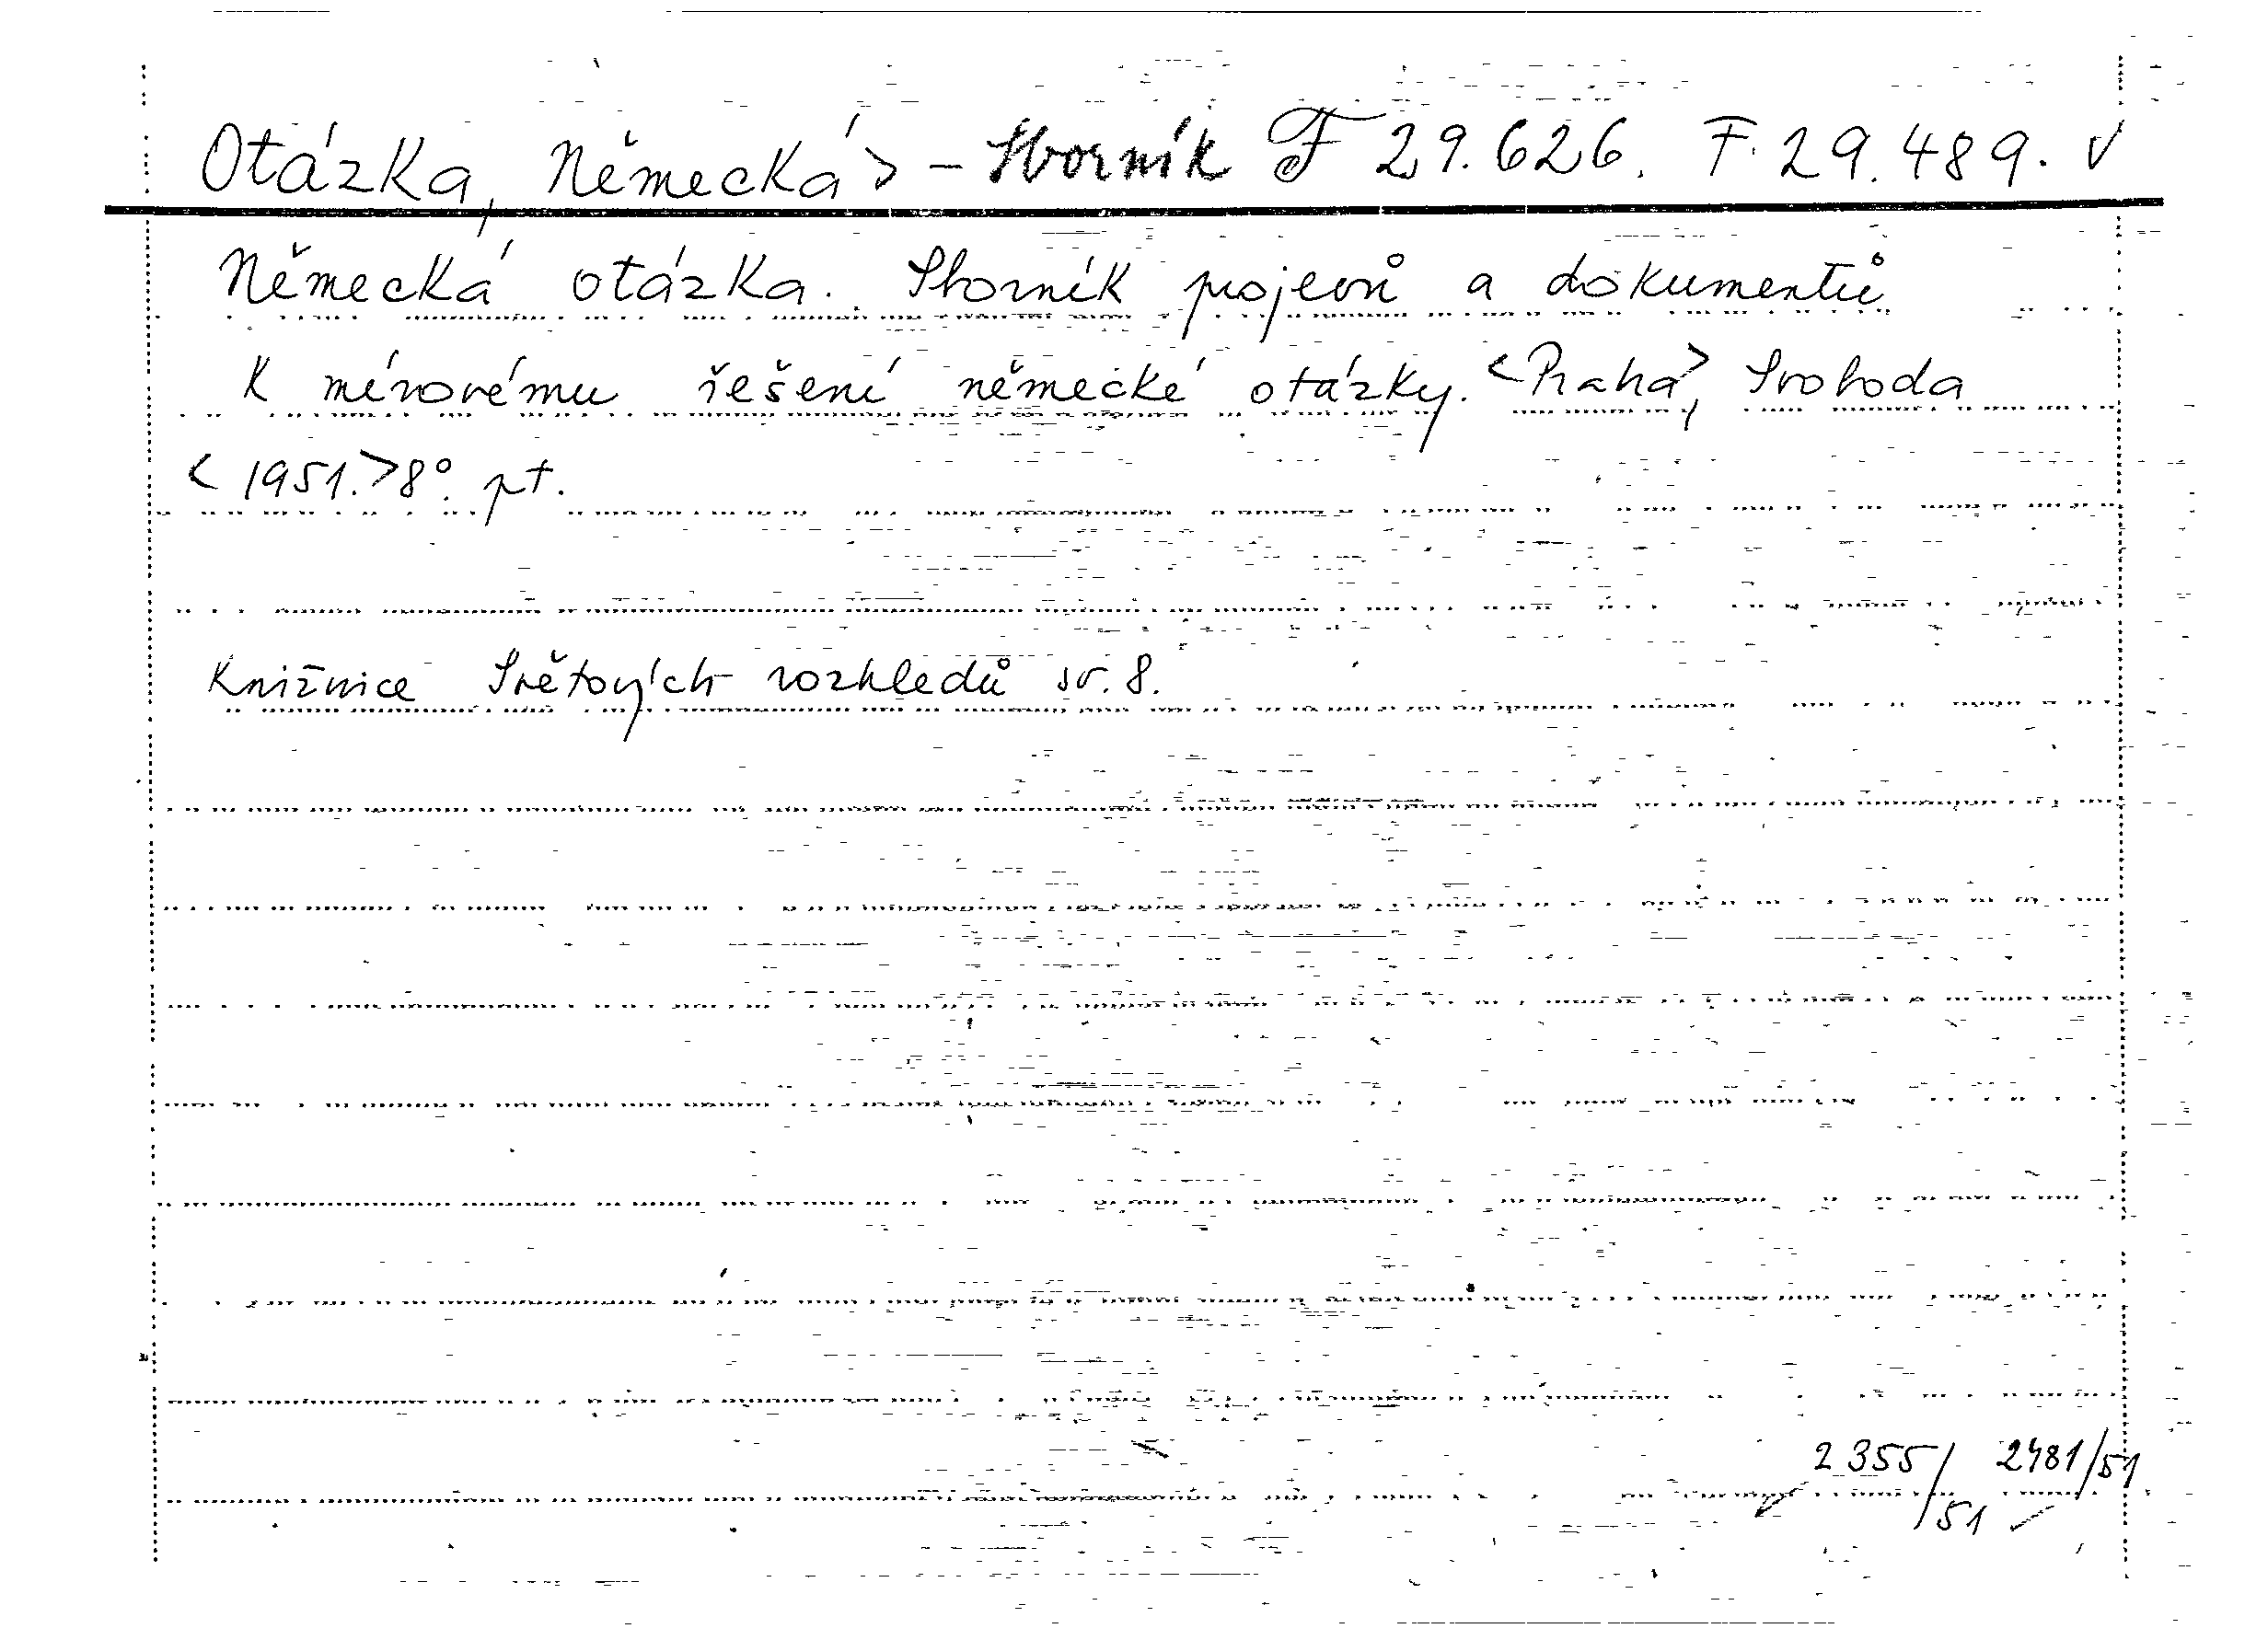 Otázka, Německá > - Sborník F 29.626. F. 29.489. √
Německá otázka. Sborník projevů a dokumentů
k mírovému řešení německé otázky. <Praha>, Svoboda
<1951.> 8°. pt.
Knižnice Světových rozhledů sv. 8.
2355/51 2481/51